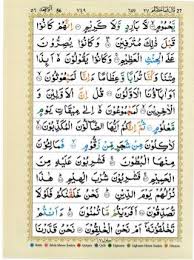 قال فما خطبكم ٢٧
يَّحْمُوْمٍ لَّا بَارِدٍ وَّلَا كَرِيْمٍ اِنَّهُمْ كَانُوْا
قَبْلَ ذٰلِكَ مُتْرَفِيْنَ وَكَانُوْا يُصِرُّوْنَ
عَلَى الْحِنْثِ الْعَظِيْمِ وَكَانُوْا يَقُوْلُوْنَ اَئِذَا
مِتْنَا وَكُنَّا تُرَابًا وَّعِظَامًا ءَاِنَّا لَمَبْعُوْثُوْنَ
اَوَاٰبَآؤُنَا الْاَوَّلُوْنَ قُلْ اِنَّ الْاَوَّلِيْنَ وَالْاٰخِرِيْنَ
لَمَجْمُوْعُوْنَ اِلٰى مِيْقَاتِ يَوْمٍ مَّعْلُوْمٍ ثُمَّ
اِنَّكُمْ اَيُّهَا الضَّآلُّوْنَ الْمُكَذِّبُوْنَ لَاٰكِلُوْنَ
مِنْ شَجَرٍ مِّنْ زَقُّوْمٍ فَمَالِـُٔوْنَ
مِنْهَا الْبُطُوْنَ فَشَارِبُوْنَ عَلَيْهِ مِنَ
الْحَمِيْمِ فَشَارِبُوْنَ شُرْبَ الْهِيْمِ هٰذَا
نُزُلُهُمْ يَوْمَ الدِّيْنِ نَحْنُ خَلَقْنٰكُمْ فَلَوْلَا
تُصَدِّقُوْنَ اَفَرَءَيْتُمْ مَّا تُمْنُوْنَ ءَاَنْتُمْ
تَخْلُقُوْنَهٗٓ اَمْ نَحْنُ الْخٰلِقُوْنَ نَحْنُ